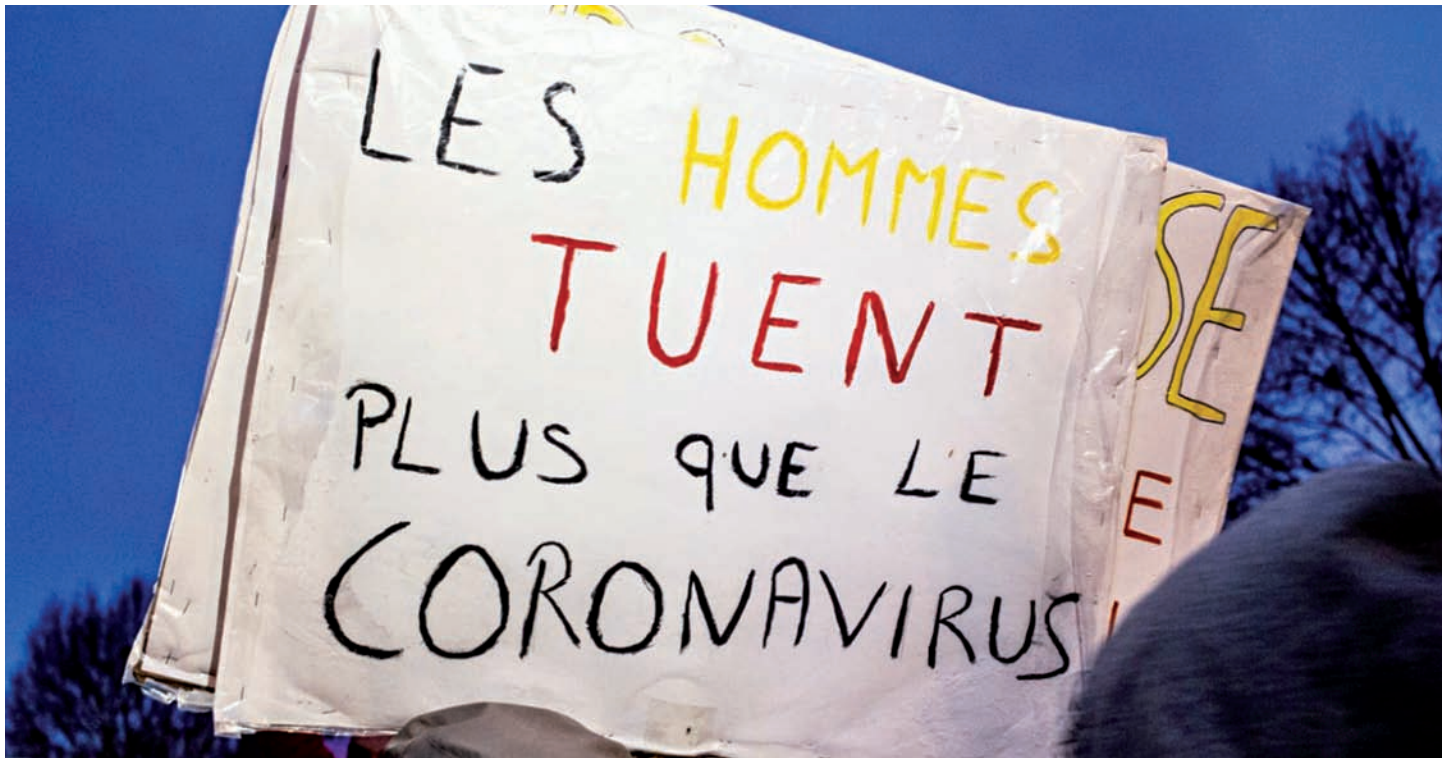 LES HOMMES
TUENT
PLUS QUE LE
CORONAVIRUS
SE
E